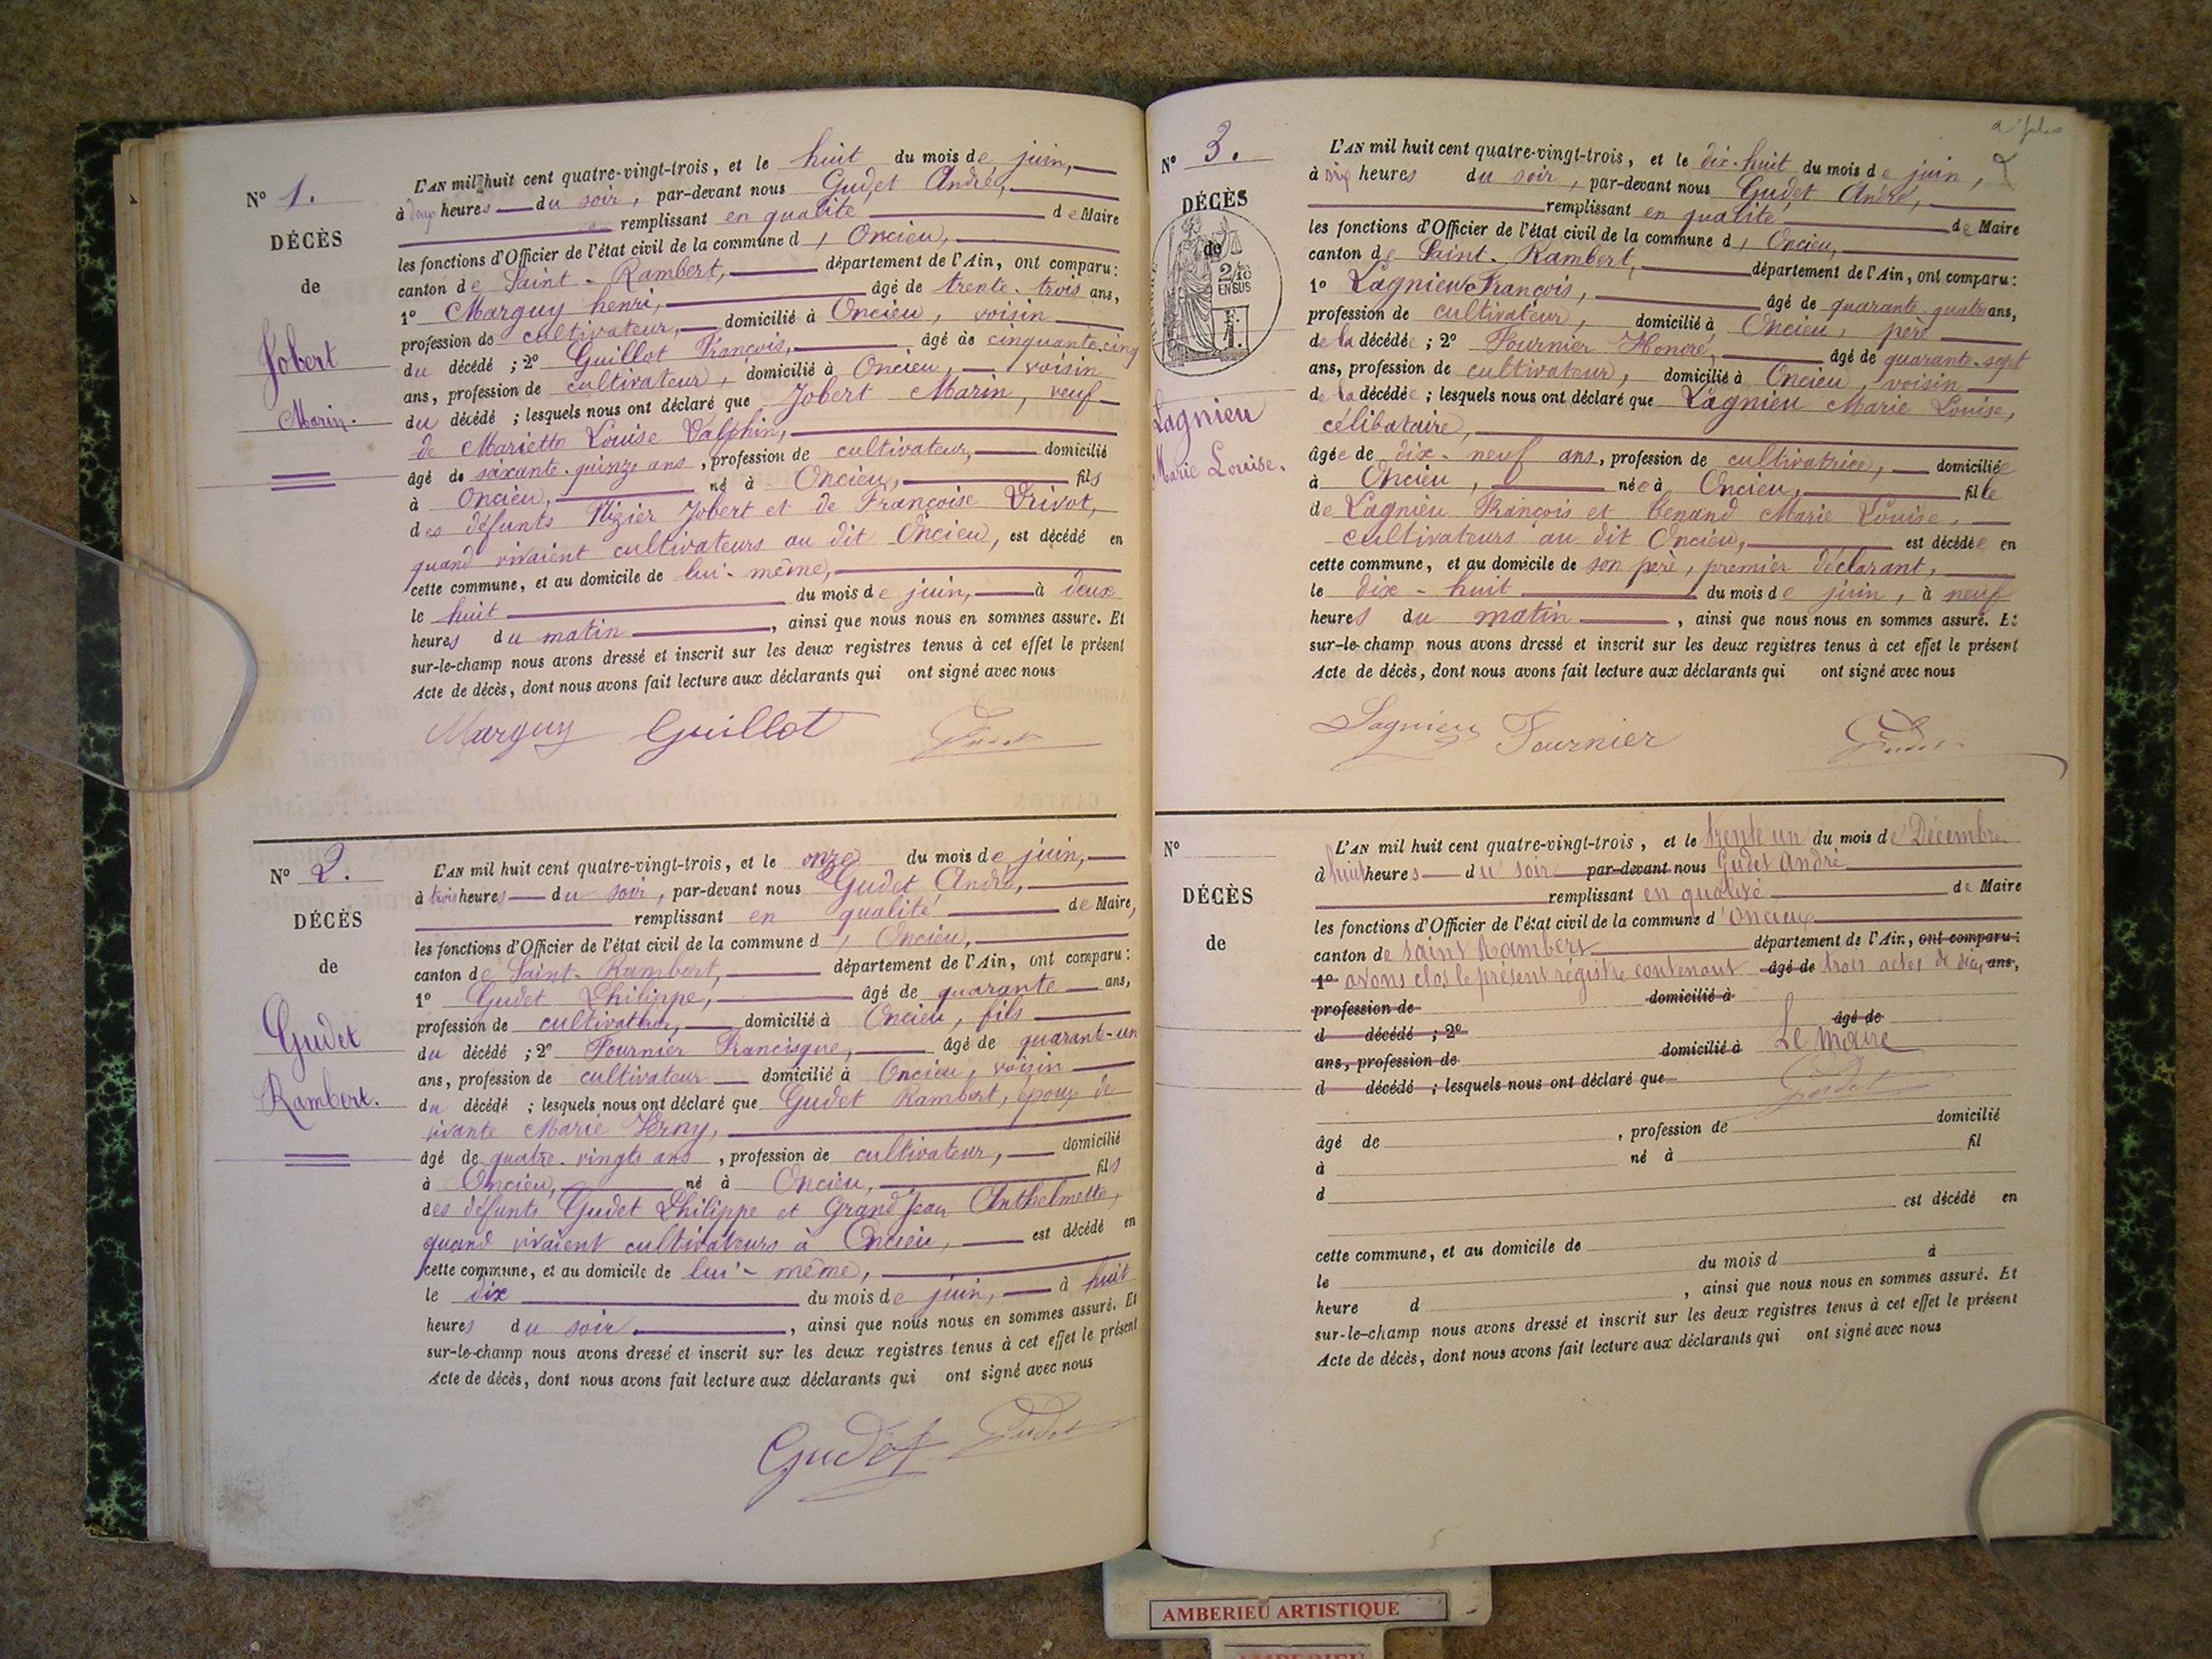 N° 1.
DÉCÈS
de
Jobert
Marin.
L'AN mil huit cent quatre-vingt-trois, et le huit du mois de juin,
à deux heures du soir, par-devant nous Gudet André,
remplissant en qualité de Maire
les fonctions d'Officier de l'état civil de la commune d' Oncieu,
canton de Saint-Rambert, département de l'Ain, ont comparu:
1° Marguy henri, âgé de trente-trois ans,
profession de cultivateur, domicilié à Oncieu, voisin
du décédé ; 2° Guillot François, âgé de cinquante-cinq
ans, profession de cultivateur, domicilié à Oncieu, voisin
du décédé ; lesquels nous ont déclaré que Jobert Marin, veuf
de Mariette Louise Dalphin,
âgé de soixante-quinze ans, profession de cultivateur, domicilié
à Oncieu, né à Oncieu, fils
des défunts Nizier Jobert et de Françoise Drivot,
quand vivaient cultivateurs au dit Oncieu, est décédé en
cette commune, et au domicile de lui-même,
le huit du mois de juin, à deux
heures du matin, ainsi que nous nous en sommes assuré. Et
sur-le-champ nous avons dressé et inscrit sur les deux registres tenus à cet effet le présent
Acte de décès, dont nous avons fait lecture aux déclarants qui ont signé avec nous
Marguy Guillot Gudet
N° 2.
DÉCÈS
de
Gudet
Rambert.
L'AN mil huit cent quatre-vingt-trois, et le onze du mois de juin,
à trois heures du soir, par-devant nous Gudet André,
remplissant en qualité de Maire,
les fonctions d'Officier de l'état civil de la commune d' Oncieu,
canton de Saint-Rambert, département de l'Ain, ont comparu:
1° Gudet Philippe, âgé de quarante ans,
profession de cultivateur, domicilié à Oncieu, fils
du décédé ; 2° Fournier Francisque, âgé de quarante-un
ans, profession de cultivateur domicilié à Oncieu, voisin
du décédé ; lesquels nous ont déclaré que Gudet Rambert, époux de
vivante Marie Verny,
âgé de quatre-vingts ans, profession de cultivateur, domicilié
à Oncieu, né à Oncieu, fils
des défunts Gudet Philippe et Grand Jean Anthelmette,
quand vivaient cultivateurs à Oncieu, est décédé en
cette commune, et au domicile de lui-même,
le dix du mois de juin, à huit
heures du soir, ainsi que nous nous en sommes assuré. Et
sur-le-champ nous avons dressé et inscrit sur les deux registres tenus à cet effet le présent
Acte de décès, dont nous avons fait lecture aux déclarants qui ont signé avec nous
Gudet Gudet
N° 3.
DÉCÈS
de
2/10
EN SUS
Lagnieu
Marie Louise.
L'AN mil huit cent quatre-vingt-trois, et le dix-huit du mois de juin,
à six heures du soir, par-devant nous Gudet André,
remplissant en qualité de Maire
les fonctions d'Officier de l'état civil de la commune d' Oncieu,
canton de Saint-Rambert, département de l'Ain, ont comparu:
1° Lagnieu François, âgé de quarante-quatre ans,
profession de cultivateur, domicilié à Oncieu, père
de la décédée ; 2° Fournier Honoré, âgé de quarante-sept
ans, profession de cultivateur, domicilié à Oncieu, voisin
de la décédée ; lesquels nous ont déclaré que Lagnieu Marie Louise,
célibataire,
âgée de dix-neuf ans, profession de cultivatrice, domiciliée
à Oncieu, née à Oncieu, fille
de Lagnieu François et Benand Marie Louise,
cultivateurs au dit Oncieu, est décédée en
cette commune, et au domicile de son père, premier déclarant,
le dix-huit du mois de juin, à neuf
heures du matin, ainsi que nous nous en sommes assuré. Et
sur-le-champ nous avons dressé et inscrit sur les deux registres tenus à cet effet le présent
Acte de décès, dont nous avons fait lecture aux déclarants qui ont signé avec nous
Lagnieu Fournier Gudet
N°
DÉCÈS
de
L'AN mil huit cent quatre-vingt-trois, et le trente un du mois de Décembre
à huit heures du soir par-devant nous Gudet André
remplissant en qualité de Maire
les fonctions d'Officier de l'état civil de la commune d'Oncieu
canton de Saint Rambert département de l'Ain, ont comparu:
1° avons clos le présent régistre contenant âgé de trois actes de décès ans,
profession de domicilié à
d décédé ; 2° âgé de
ans, profession de domicilié à Le Maire
d décédé ; lesquels nous ont déclaré que Gudet
âgé de , profession de domicilié
à né à fil
d
est décédé en
cette commune, et au domicile de
le du mois d à
heure d , ainsi que nous nous en sommes assuré. Et
sur-le-champ nous avons dressé et inscrit sur les deux registres tenus à cet effet le présent
Acte de décès, dont nous avons fait lecture aux déclarants qui ont signé avec nous
AMBERIEU ARTISTIQUE
AMBERIEU